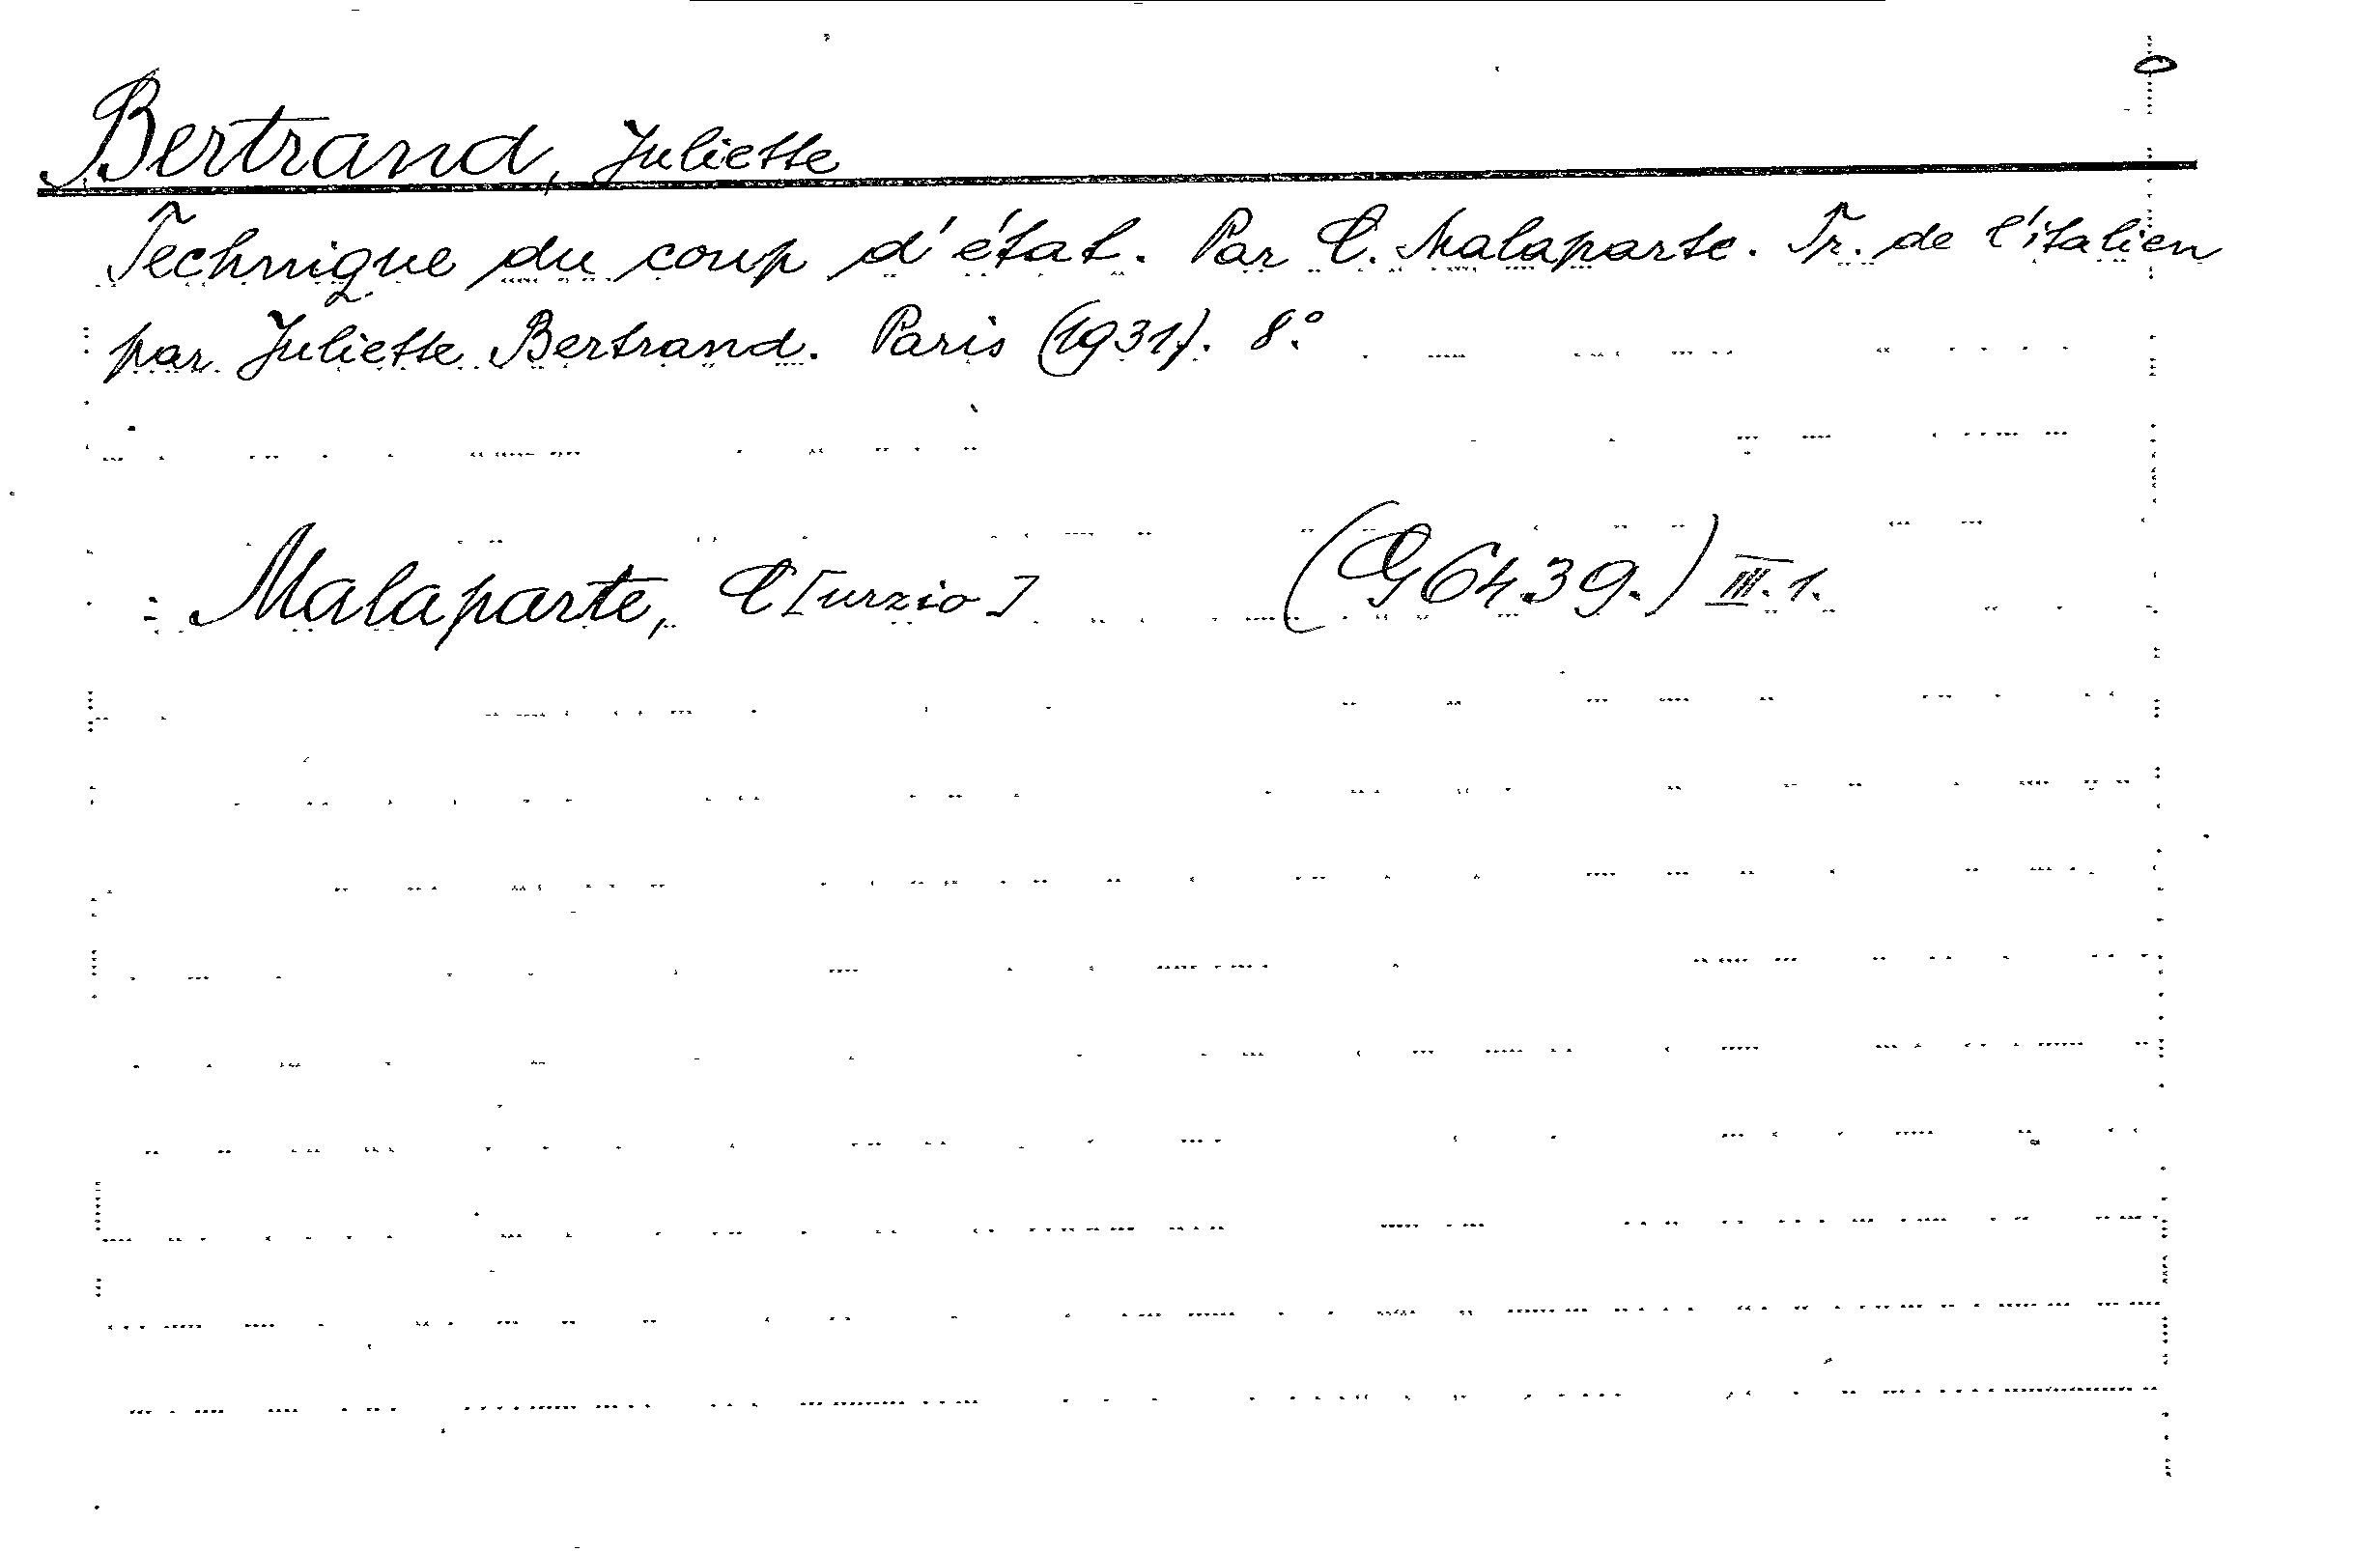 Bertrand, Juliette
Technique du coup d'état. Par C. Malaparte. Tr. de l'italien
par Juliette Bertrand. Paris (1931). 8°.
: Malaparte, C[urzio] (G 6439.) III. 1.